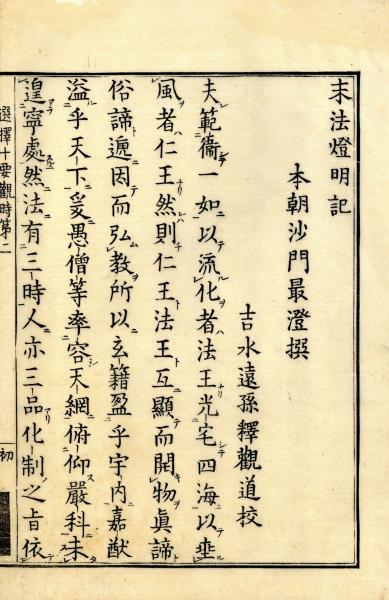 末法燈明記
本朝沙門最澄撰
吉水遠孫釋觀道校
夫範衞一如以流化者法王光宅四海以埀
風者仁王然則仁王法王互顯而開物眞諦
俗諦遞因而弘教所以玄籍盈乎宇内嘉猷
溢乎天下爰愚僧等率容天網俯仰嚴科未
遑寧處然法有三時人亦三品化制之旨依
選擇十要觀時第二
初